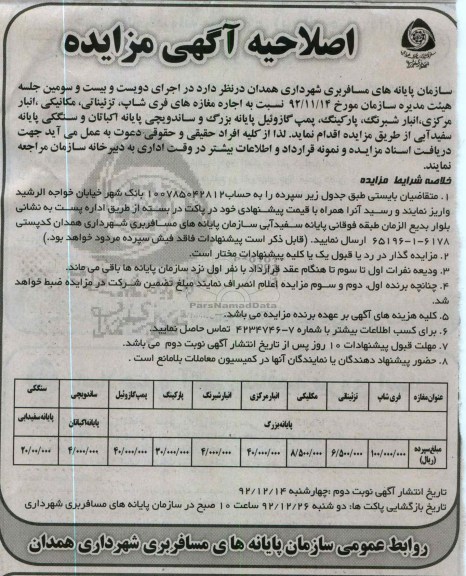 اصلاحیه آگهی مزایده
سازمان پایانه های مسافربری شهرداری همدان درنظر دارد در اجرای دویست و بیست و سومین جلسه
هیئت مدیره سازمان مورخ ۹۲/۱۱/۱۴ نسبت به اجاره مغازه های فری شاپ، تزئیناتی، مکانیکی ،انبار
مرکزی،انبار شیرنگ، پارکینگ، پمپ گازوئیل پایانه بزرگ و ساندویچی پایانه اکباتان و سنگکی پایانه
سفیدآبی از طریق مزایده اقدام نماید. لذا از کلیه افراد حقیقی و حقوقی دعوت به عمل می آید جهت
دریافت اسناد مزایده و نمونه قرارداد و اطلاعات بیشتر در وقت اداری به دبیرخانه سازمان مراجعه
نمایند.
خلاصه شرایط مزایده
۱. متقاضیان بایستی طبق جدول زیر سپرده را به حساب ۱۰۰۷۸۵۰۴۲۸۱۲ بانک شهر خیابان خواجه الرشید
واریز نمایند و رسید آنرا همراه با قیمت پیشنهادی خود در پاکت در بسته از طریق اداره پست به نشانی
بلوار بدیع الزمان طبقه فوقانی پایانه سفیدآبی سازمان پایانه های مسافربری شهرداری همدان کدپستی
۶۱۷۸-۶۵۱۹۶۰۱ ارسال نمایید. (قابل ذکر است پیشنهادات فاقد فیش سپرده مردود خواهد بود.)
۲. مزایده گذار در رد یا قبول یک یا کلیه پیشنهادات مختار است.
۳. ودیعه نفرات اول تا سوم تا هنگام عقد قرارداد با نفر اول نزد سازمان پایانه ها باقی می ماند.
۴. چنانچه برنده اول، دوم و سوم مزایده اعلام انصراف نمایند مبلغ تضمین شرکت در مزایده ضبط خواهد
شد.
۵. کلیه هزینه های آگهی بر عهده برنده مزایده می باشد.
۶. برای کسب اطلاعات بیشتر با شماره ۷-۴۲۳۴۷۴۶ تماس حاصل نمایید.
۷. مهلت قبول پیشنهادات ۱۰ روز پس از تاریخ انتشار آگهی نوبت دوم می باشد.
۸. حضور پیشنهاد دهندگان یا نمایندگان آنها در کمیسیون معاملات بلامانع است .
ParsNamadData
عنوان مغازه فری شاپ تزئیناتی مکانیکی انبار مرکزی انبار شیرنگ پارکینگ پمپ گازوئیل ساندویچی سنگکی
پایانه بزرگ پایانه اکباتان پایانه سفیدابی
مبلغ سپرده (ریال) ۱۰۰/۰۰۰/۰۰۰ ۶/۵۰۰/۰۰۰ ۸/۵۰۰/۰۰۰ ۴۰/۰۰۰/۰۰۰ ۴/۰۰۰/۰۰۰ ۳۰/۰۰۰/۰۰۰ ۴۰/۰۰۰/۰۰۰ ۴/۰۰۰/۰۰۰ ۲۰/۰۰/۰۰۰
تاریخ انتشار آگهی نوبت دوم :چهارشنبه ۹۲/۱۲/۱۴
تاریخ بازگشایی پاکت ها: دو شنبه ۹۲/۱۲/۲۶ ساعت ۱۰ صبح در سازمان پایانه های مسافربری شهرداری
روابط عمومی سازمان پایانه های مسافربری شهرداری همدان